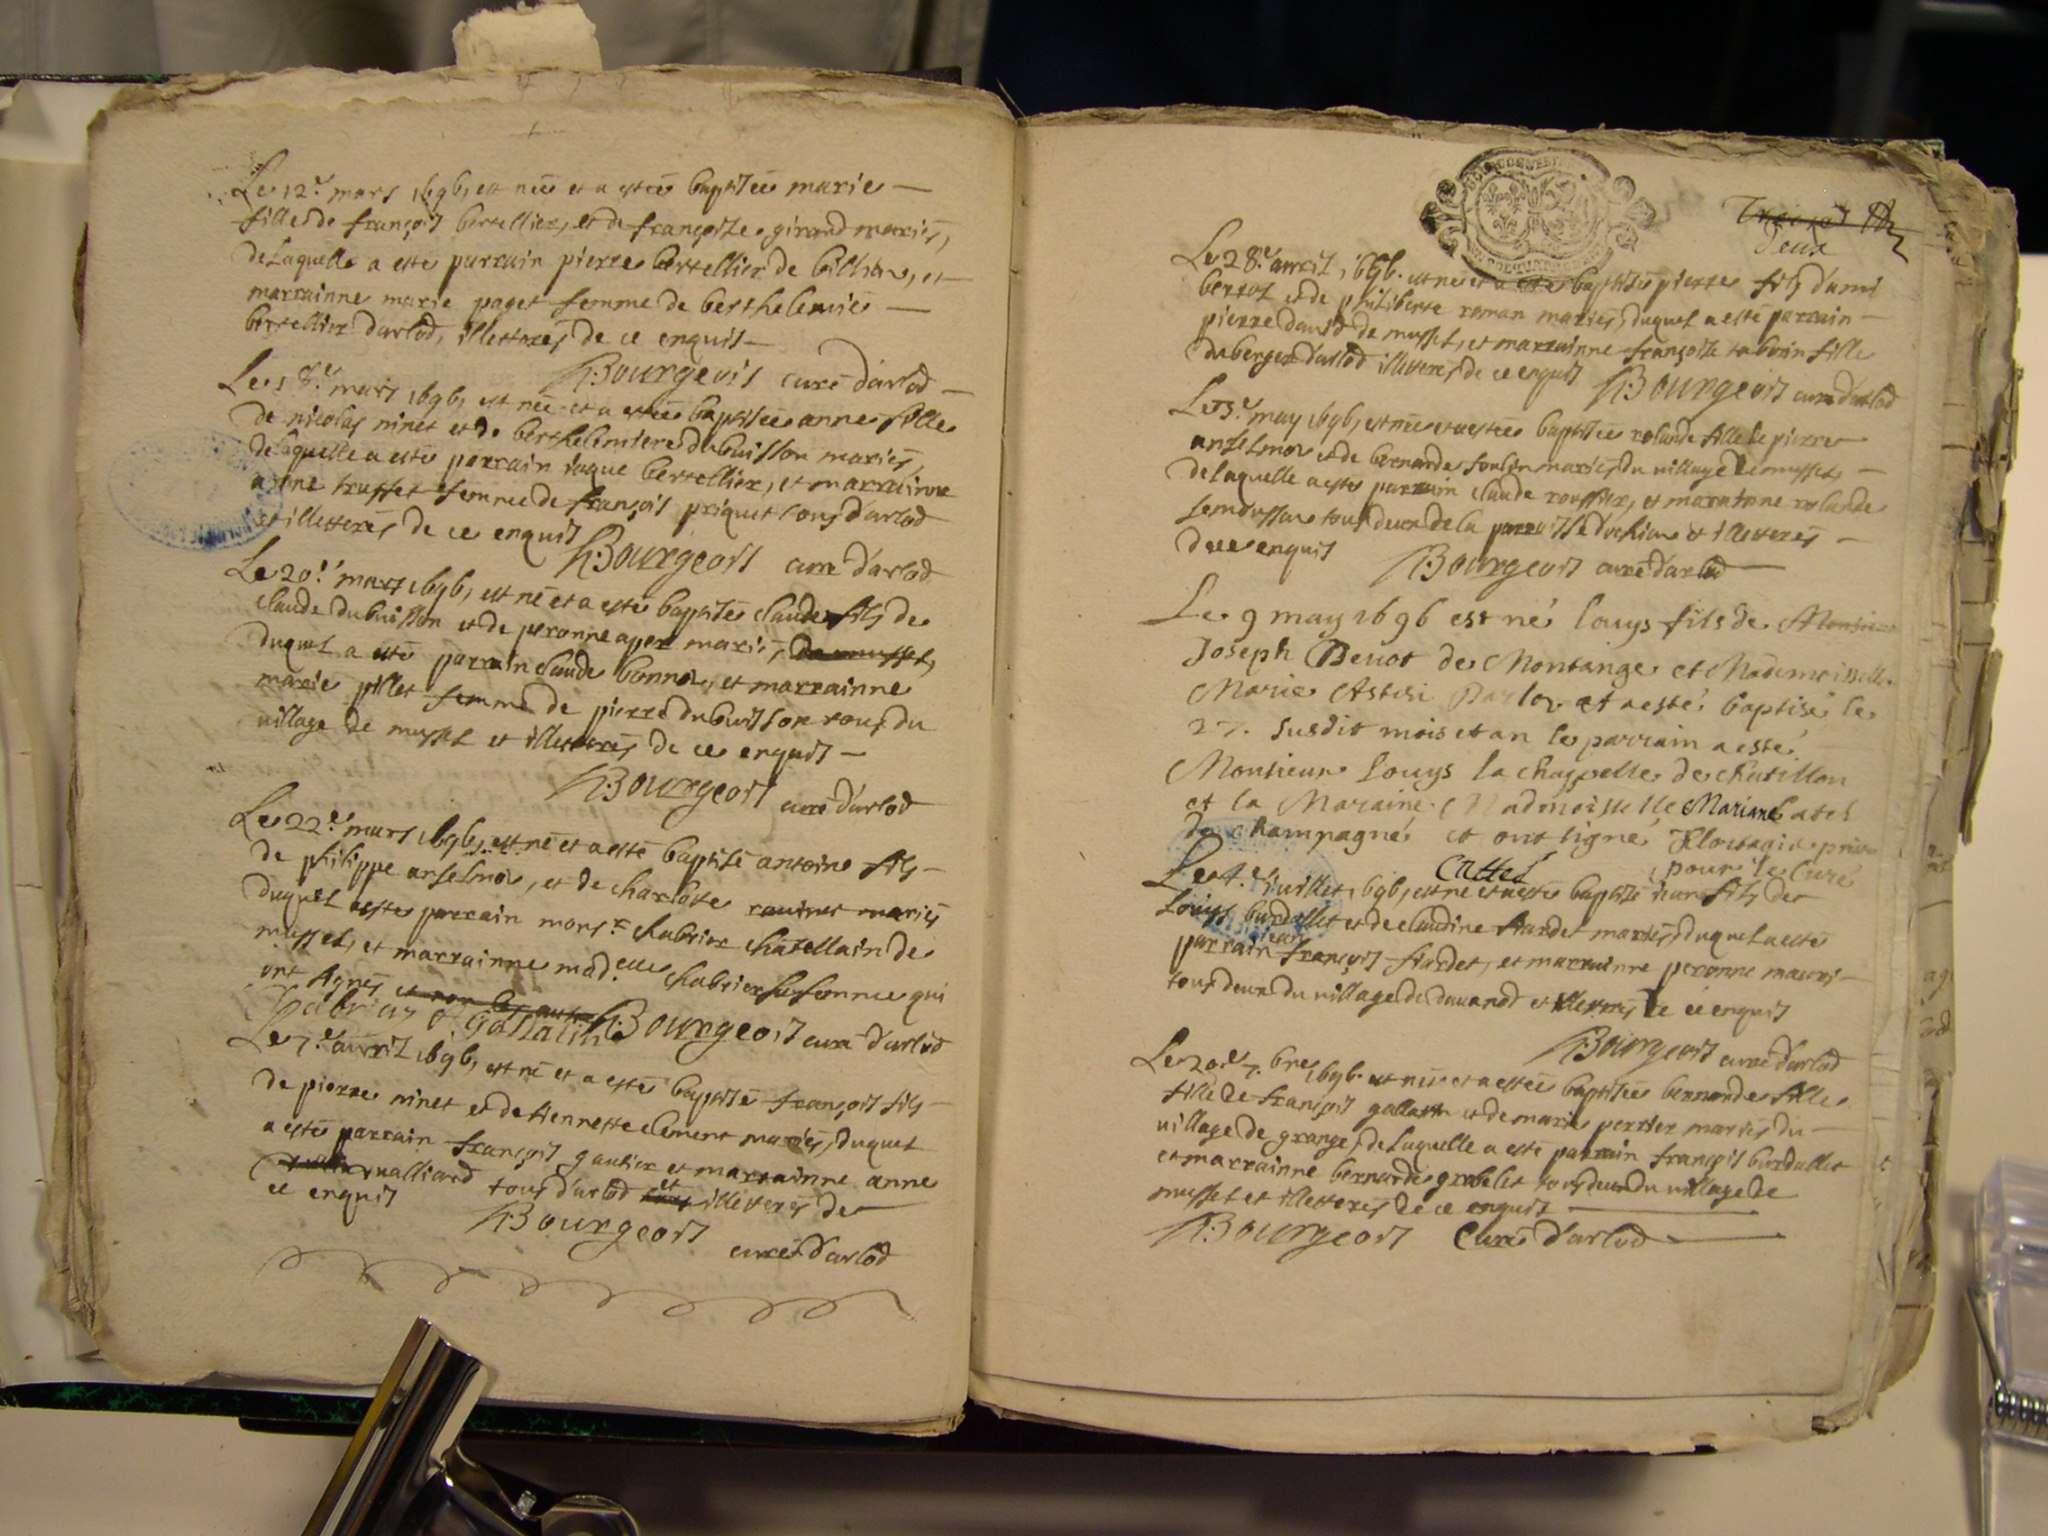 Le 12.e mars 1696, est neë et a esteë baptiseë marie
fille de françois bertellier, et de françoise girand mariés,
de Laquelle a esté parrain pierre bertellier de billia, et
marrainne marie paget femme de berthelemie
bertellier d'arlod, illetterés de ce enquis
Bourgeois curé d'arlod
Le 18.e mars 1696, est neë et a esteë baptiseë anne fille
de nicolas ninet et de berthelemiere dubuisson mariés,
de laquelle a esté parrain iaque bertellier, et marrainne
anne truffet femme de françois priquet tous d'arlod
et illetterés de ce enquis
Bourgeois curé d'arlod
Le 20.e mars 1696, est né et a esté baptisé claude fils de
claude dubuisson et de peronne aper mariés, de musset,
duquel a esté parrain claude bonna, et marrainne
marie pillet femme de pierre dubuisson tous du
village de musset et illetterés de ce enquis
Bourgeois curé d'arlod
Le 22.e mars 1696, est né et a esté baptisé antoine fils
de philippe anselmo, et de charlote mariés
duquel a esté parrain mons.r chabrier chatellain de
musset, et marrainne mad.elle chabrier sa femme qui
ont signés et non les autres
Bourgeois curé d'arlod
Le 7.e avril 1696, est né et a esté baptisé françois fils
de pierre ninet et de tiennette clement mariés, duquel
a esté parrain françois gautier et marrainne anne
vualliard tous d'arlod et illetterés de
ce enquis
Bourgeois
curé d'arlod
deux
Le 28.e avril 1696. est né et a esté baptisé pierre fils d'ami
bertet et de philiberte roman mariés, duquel a esté parrain
pierre david de musset, et marrainne françoise tabuin fille
du berger d'arlod illetterés de ce enquis
Bourgeois curé d'arlod
Le 3.e may 1696, est neë et a esteë baptiseë rolande fille de pierre
anselmoz et de bernarde mariés du village de musset
de laquelle a esté parrain claude roussier, et maratnne rolande
tous deux de la parroisse d'ochiaz et illetterés
de ce enquis
Bourgeois curé d'arlod
Le 9 may 1696 est né Louys fils de Monsieur
Joseph Benot de Montange et Mademoiselle
Marie et a esté baptisé le
27. susdit mois et an le parrain a esté
Monsieur Louys la chappelle de chatillon
et la Maraine Madmoiselle Marianne
de champagne et ont signé
pour le curé
Le 4.e iuillet 1696, est né et a esté baptisé iean fils de
Louys burdallet et de claudine hardet mariés, duquel a esté
parrain iean françois hardet, et marrainne peronne mauris
tous deux du village de et illetterés de ce enquis
Bourgeois curé d'arlod
Le 20.e 7.bre 1696. est neë et a esteë baptiseë bernarde fille
fille de françois gallatin et de marie perrier mariés du
village de grange, de Laquelle a esté parrain françois burdallet
et marrainne bernarde grabelit tous deux du village de
musset et illetterés de ce enquis
Bourgeois Curé d'arlod